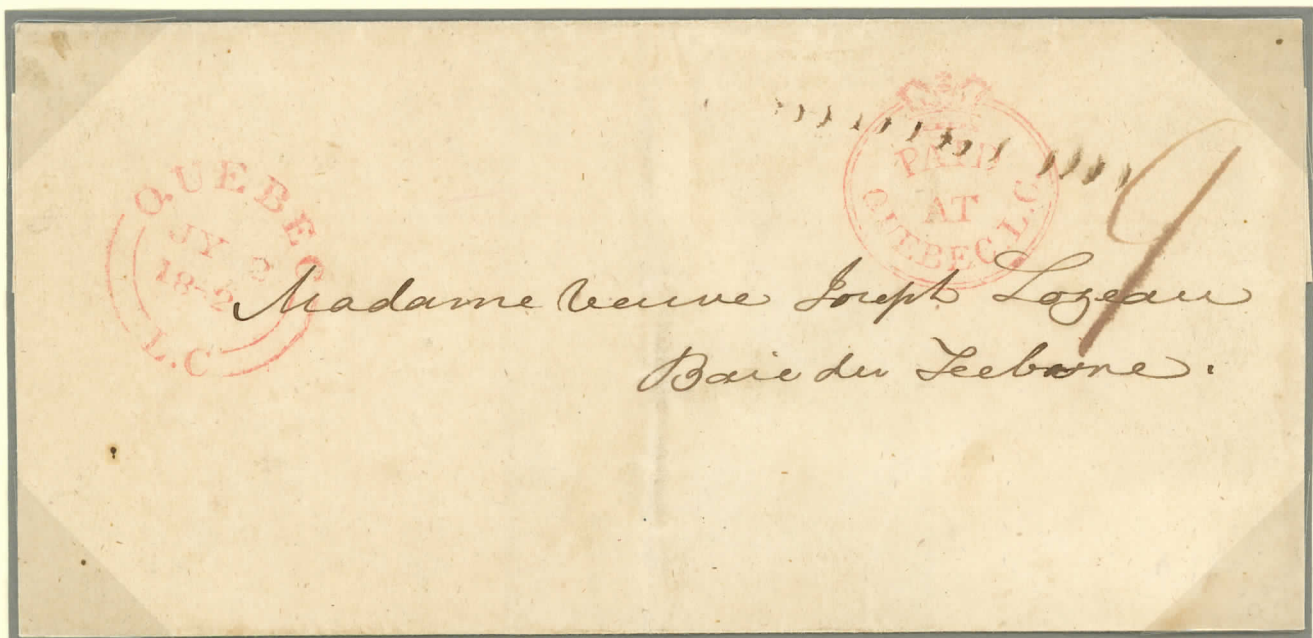 QUEBEC
JY 2
18-2
L.C
PAID
AT
QUEBEC L.C.
9
Madame Veuve Joseph Lozeau
Baie du Febvre.